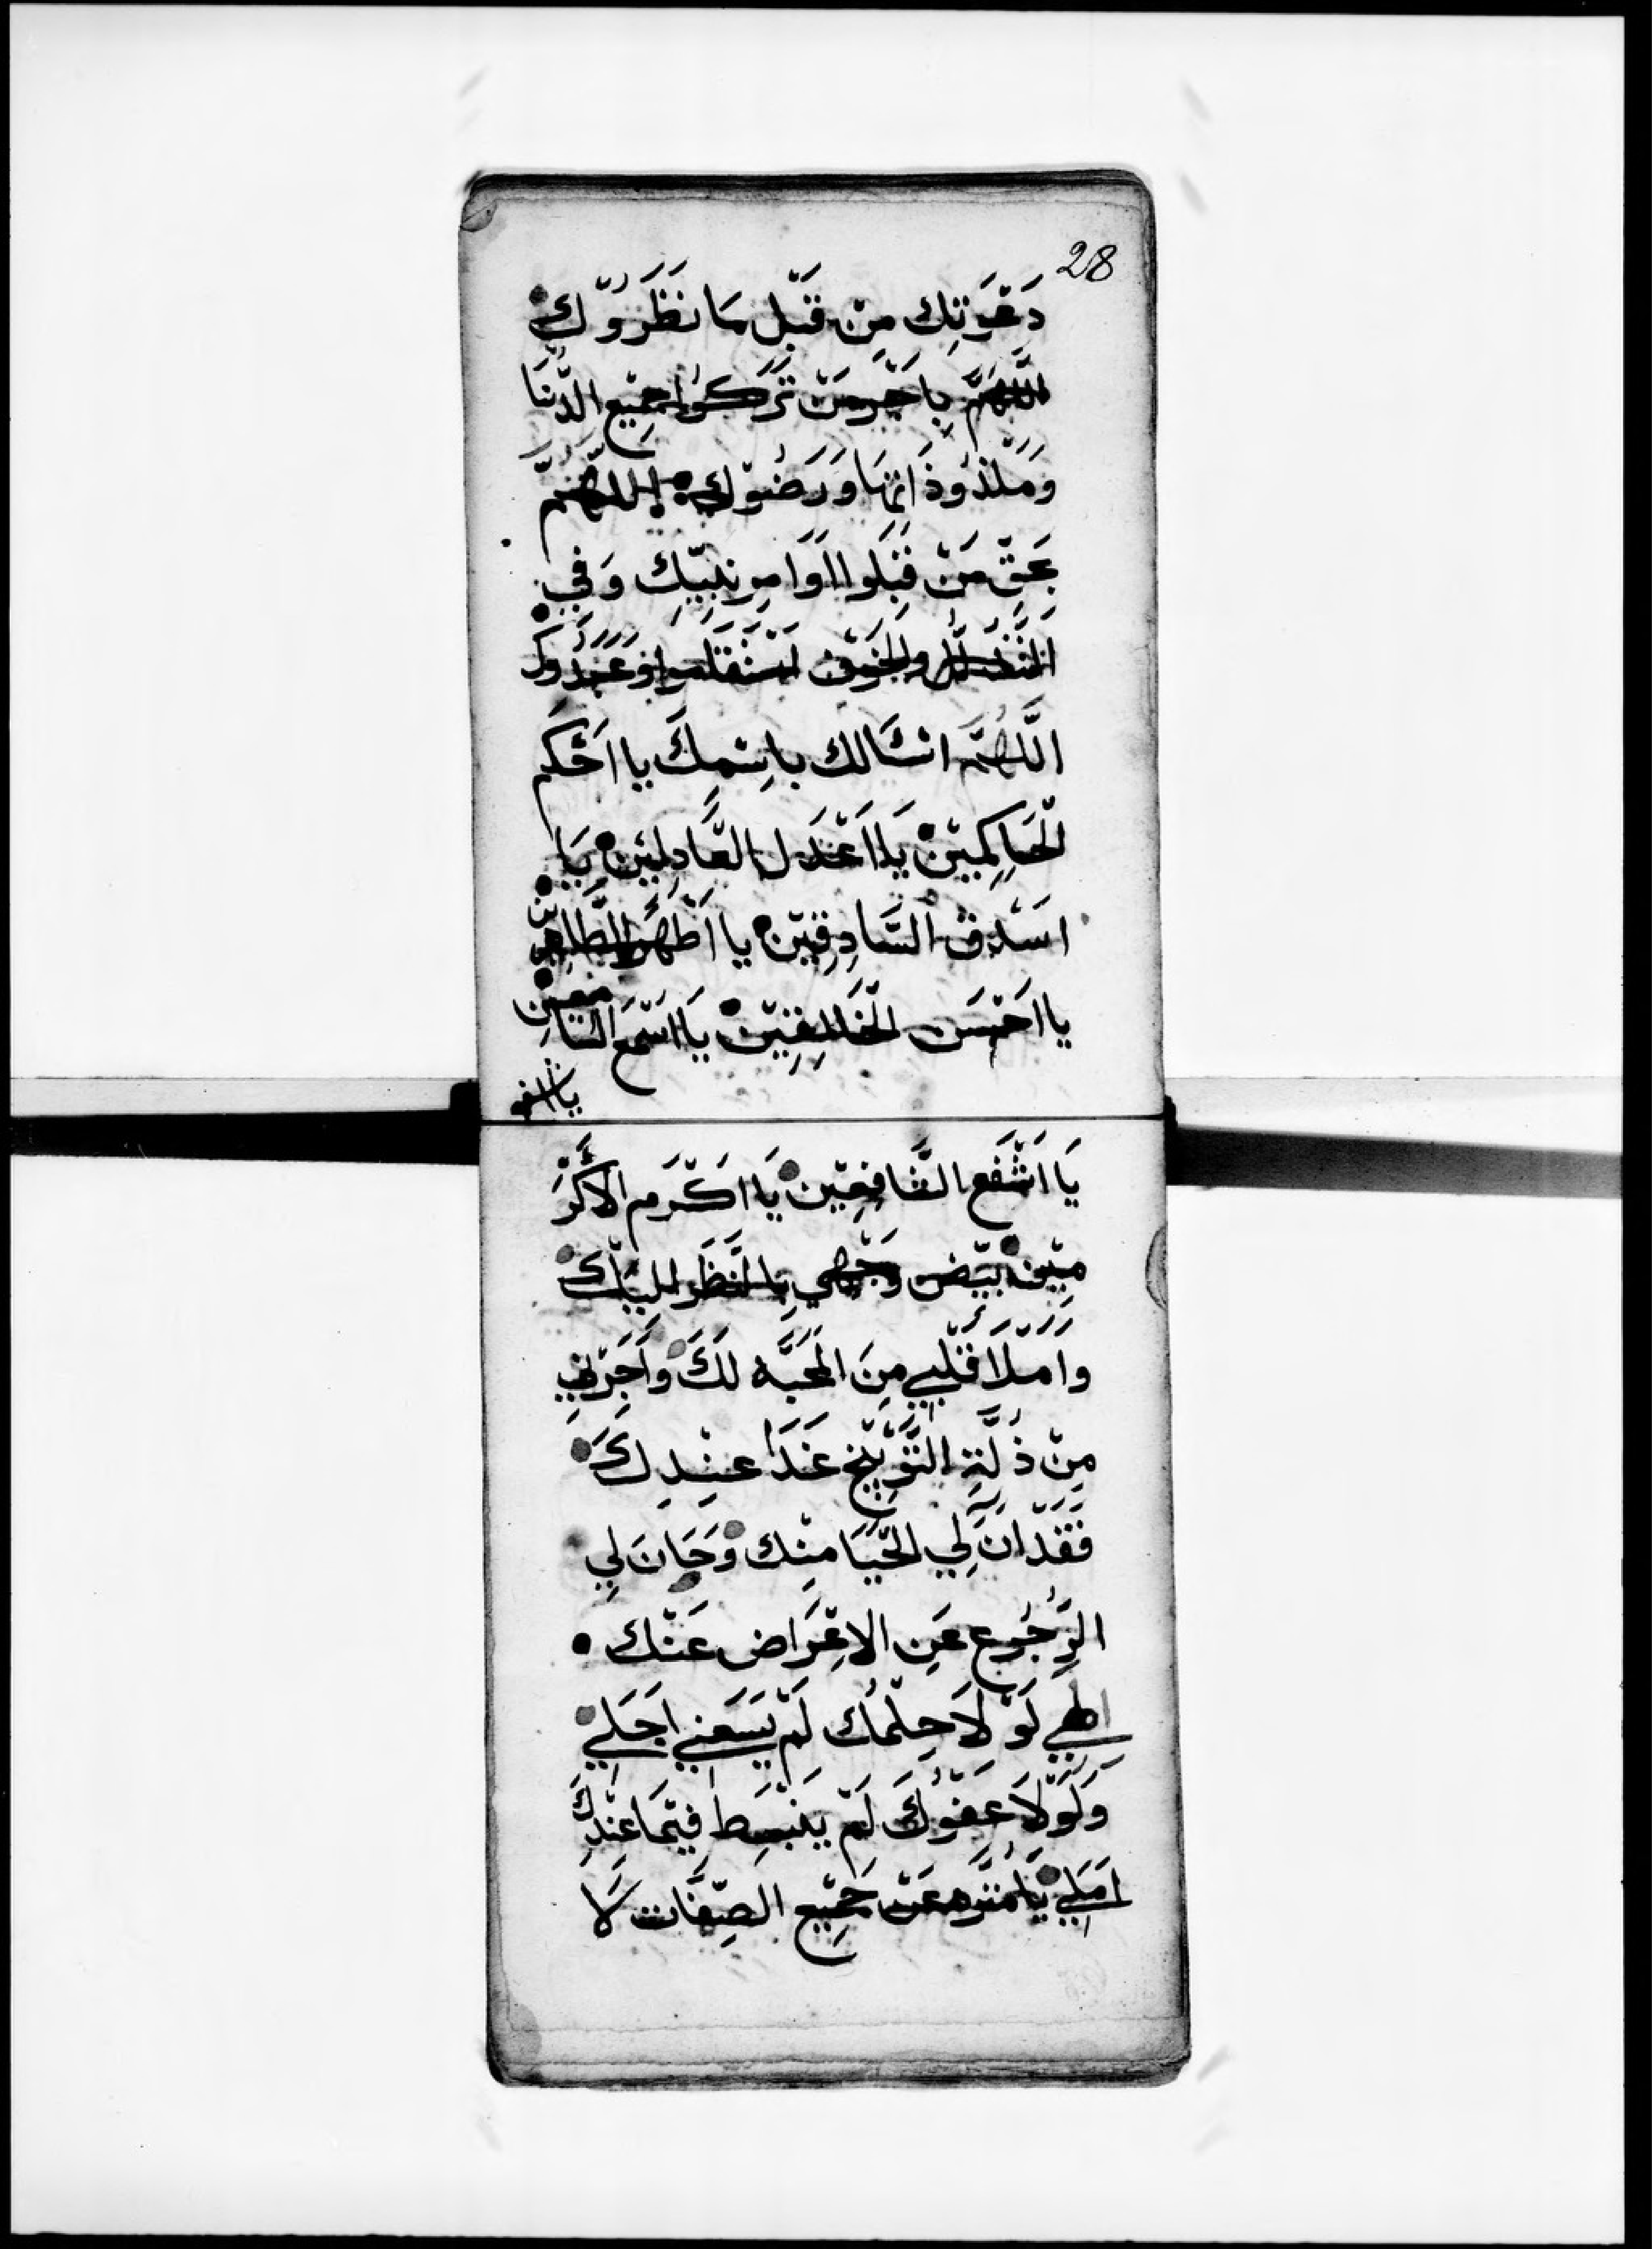 28
دَعْوَتِك مِنْ قَبْل مَا نَظَرُوْك
اللَّهُمَّ بِاَجْرِ مَنْ تَرَكُوا جَمِيْع الدُّنْيَا
وَمَلْذُوذَاتِهَا وَرَضُوْك اللهُمَّ
بحَقّ مَنْ قَبَلُوا اَوَامِر نَبِيّكِ وَفِي
وَعَبَدُوك
اللَّهُمَّ اسْئَالك بِاسْمِكَ يا اَحْكَم
الْحَاكِمِيْنْ يَا اَعْدَل العَادِلِيْن يَا
اسَدْق السَّادِقِيْن يا اَطْهَر الطَّاهِرين
يا احْسَن الْخَالِقِيْن يَا اسْمَع السَّامعين
يَا اشفع
يَا اَشْفَع الشَّافِعِيْن يَا اكْرَم الاكْرَ
مِيْن بَيّض وَجْهِي بِالنَّظَر اليْكَ
وَامْلَا قَلْبِي مِنَ الْمَحَبَّه لَكَ وَاَجِرْنِي
مِنْ ذُلَّةِ التَّوْبِيْخ غَدَا عِنْدِكَ
فَقَدْ اَنَ لِي الْحَيَا مِنْك وَحَانَ لِي
الرِّجُوع عَنِ الاعْرَاض عَنْك
الهِي لَوْ لَا حِلْمُك لَمْ يَسَعنِي اَجَلِي
وَلَوْلَا عَفْوُكَ لَمْ يَنْبَسِط فِيْمَا عِنْدِكَ
اَمَلِي يَا مُنَزَّه عَنْ جَمِيْع الصِّفَات لَا